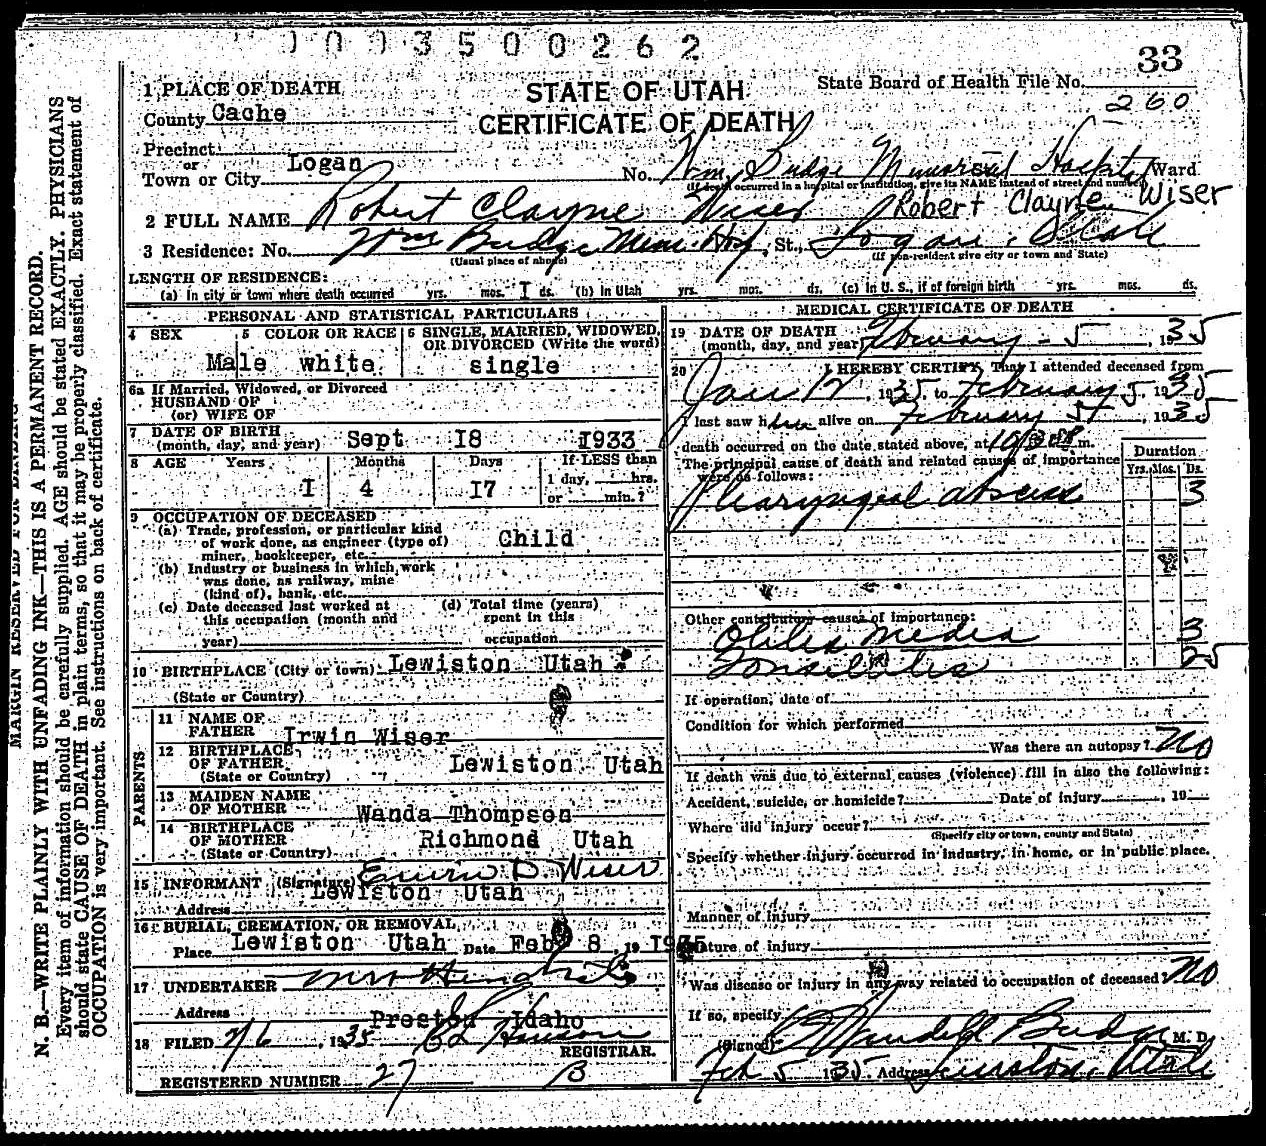 0093500262
33
1 PLACE OF DEATH
STATE OF UTAH
State Board of Health File No.
260
County Cache
CERTIFICATE OF DEATH
Precinct
or
Town or City Logan No. Wm. Budge Memorial Hospital Ward
(If death occurred in a hospital or institution, give its NAME instead of street and number)
2 FULL NAME Robert Clayne Wiser Robert Clayne Wiser
3 Residence: No. Wm Budge Mem. Hosp. St., Logan, Utah
(Usual place of abode) (If non-resident give city or town and State)
LENGTH OF RESIDENCE:
(a) In city or town where death occurred yrs. mos. 1 ds. (b) In Utah yrs. mos. ds. (c) In U. S., if of foreign birth yrs. mos. ds.
PERSONAL AND STATISTICAL PARTICULARS
4 SEX 5 COLOR OR RACE 6 SINGLE, MARRIED, WIDOWED, OR DIVORCED (Write the word)
Male white single
6a If Married, Widowed, or Divorced
HUSBAND OF
(or) WIFE OF
7 DATE OF BIRTH
(month, day, and year) Sept 18 1933
8 AGE Years Months Days If LESS than
1 4 17 1 day, hrs.
or min.?
9 OCCUPATION OF DECEASED
(a) Trade, profession, or particular kind
of work done, as engineer (type of) Child
miner, bookkeeper, etc.
(b) Industry or business in which work
was done, as railway, mine
(kind of), bank, etc.
(c) Date deceased last worked at (d) Total time (years)
this occupation (month and spent in this
year) occupation
10 BIRTHPLACE (City or town) Lewiston Utah
(State or Country)
PARENTS
11 NAME OF
FATHER Irwin Wiser
12 BIRTHPLACE
OF FATHER Lewiston Utah
(State or Country)
13 MAIDEN NAME
OF MOTHER Wanda Thompson
14 BIRTHPLACE
OF MOTHER Richmond Utah
(State or Country)
15 INFORMANT (Signature) Erwin D Wiser
Address Lewiston Utah
16 BURIAL, CREMATION, OR REMOVAL
Place Lewiston Utah Date Feb 8, 19 1935
17 UNDERTAKER
Address Preston Idaho
18 FILED 2/6, 1935
REGISTRAR.
REGISTERED NUMBER 27 B
MEDICAL CERTIFICATE OF DEATH
19 DATE OF DEATH
(month, day, and year) February - 5, 1935
20 I HEREBY CERTIFY, That I attended deceased from
Jan 12, 1935, to February 5, 1935
I last saw him alive on February 5, 1935
death occurred on the date stated above, at m.
The principal cause of death and related causes of importance
were as follows:
Duration
Yrs. Mos. Ds.
Pharyngeal abscess 3
Other contributory causes of importance:
Otitis media 3
Tonsillitis 25
If operation, date of
Condition for which performed
Was there an autopsy? No
If death was due to external causes (violence) fill in also the following:
Accident, suicide, or homicide? Date of injury , 19
Where did injury occur?
(Specify city or town, county and State)
Specify whether injury occurred in industry, in home, or in public place.
Manner of injury
Nature of injury
Was disease or injury in any way related to occupation of deceased? No
If so, specify
(Signed) Wendell Budge, M. D.
Feb 5 1935 Address Lewiston, Utah
MARGIN RESERVED FOR BINDING
N. B.—WRITE PLAINLY WITH UNFADING INK—THIS IS A PERMANENT RECORD.
Every item of information should be carefully supplied. AGE should be stated EXACTLY. PHYSICIANS
should state CAUSE OF DEATH in plain terms, so that it may be properly classified. Exact statement of
OCCUPATION is very important. See instructions on back of certificate.